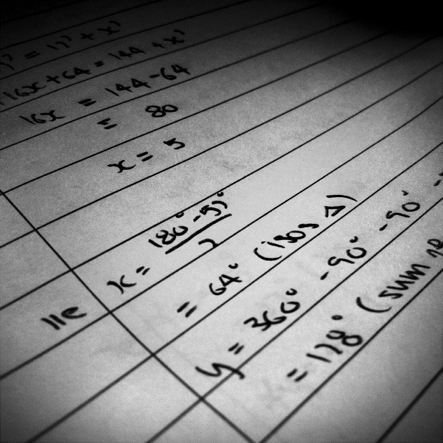 )² = 12² + x²
+16x+64 = 144 + x²
16x = 144-64
= 80
x = 5
11e x = 180°-52°
2
= 64° (isos △)
y = 360° -90° -90°
= 128° (sum